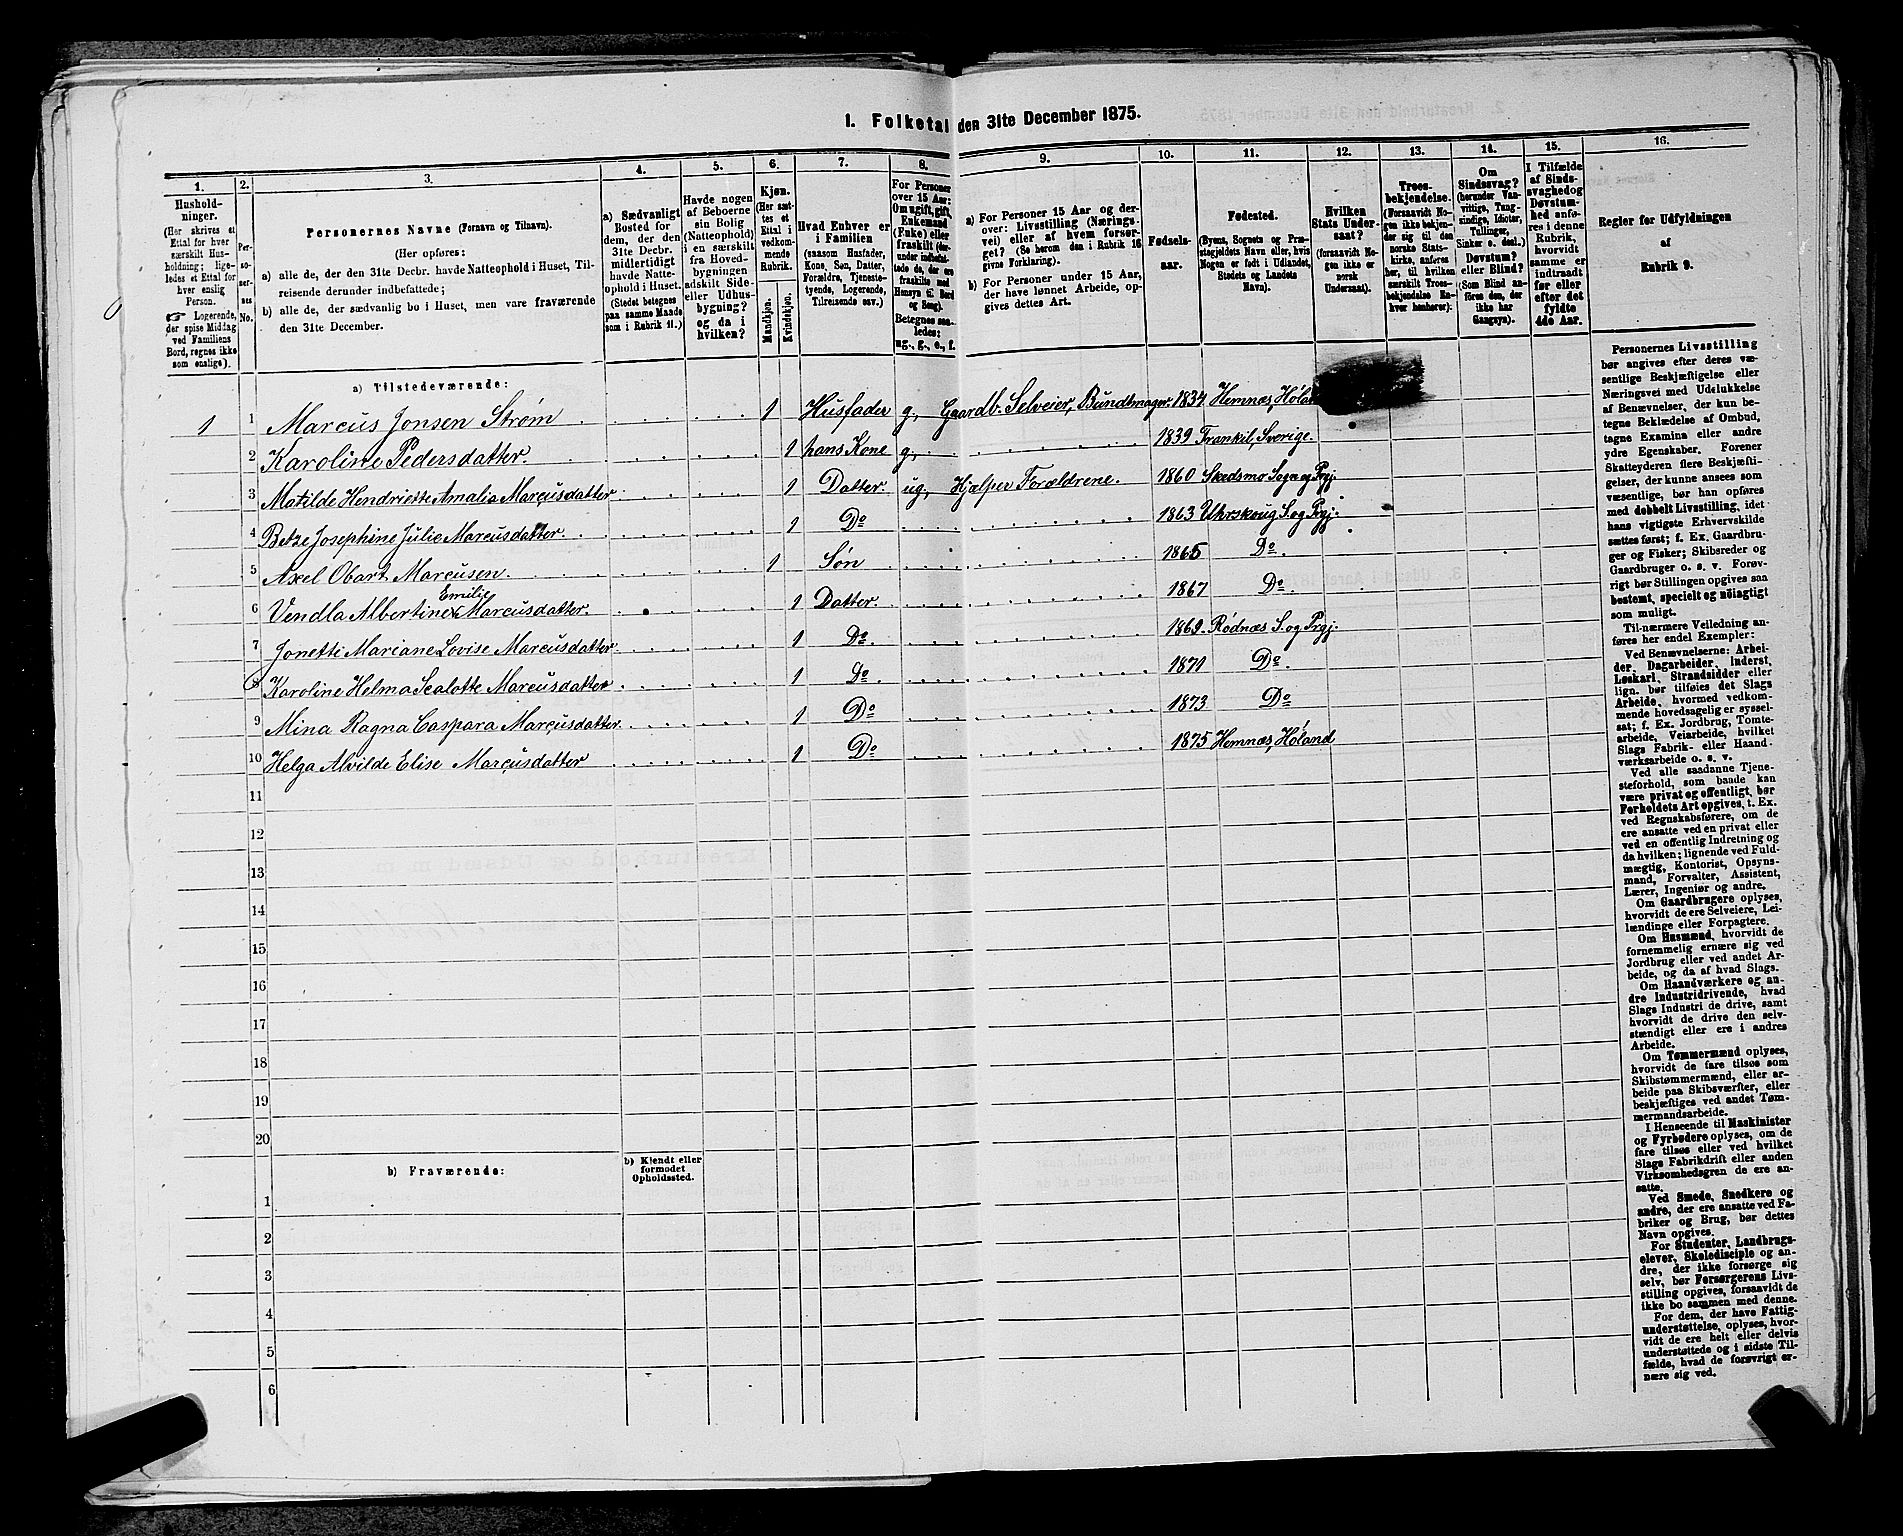 1. Folketal den 31te December 1875.
1.
Hushold-
ninger.
(Her skrives et
Ettal for hver
særskilt Hus-
holdning; lige-
ledes et Ettal for
hver enslig
Person.
☞ Logerende,
der spise Middag
ved Familiens
Bord, regnes ikke
som enslige).
2.
Per-
so-
ner-
nes
No.
3.
Personernes Navne (Fornavn og Tilnavn).
(Her opføres:
a) alle de, der den 31te Decbr. havde Natteophold i Huset, Til-
reisende derunder indbefattede;
b) alle de, der sædvanlig bo i Huset, men vare fraværende
den 31te December.
4.
a) Sædvanligt
Bosted for
dem, der den
31te Decbr.
midlertidigt
havde Natte-
ophold i Huset.
(Stedet betegnes
paa samme Maade
som i Rubrik 11.)
5.
Havde nogen
af Beboerne
sin Bolig
(Natteophold)
i en særskilt
fra Hoved-
bygningen
adskilt Side-
eller Udhus-
bygning?
og da i
hvilken?
6.
Kjøn.
(Her sæt-
tes et
Ettal i
vedkom-
mende
Rubrik.
Mandkjøn.
Kvindekjøn.
7.
Hvad Enhver er
i Familien
(saasom Husfader,
Kone, Søn, Datter,
Forældre, Tjeneste-
tyende, Logerende,
Tilreisende osv.)
8.
For Personer
over 15 Aar:
Om ugift, gift,
Enkemand
(Enke) eller
fraskilt (der-
under indbefat-
tede de, der
ere fraskilte med
Hensyn til Bord
og Seng).
Betegnes saa-
ledes:
ug., g., e., f.
9.
a) For Personer 15 Aar og der-
over: Livsstilling (Nærings-
vei) eller af hvem forsør-
get? (Se herom den i Rubrik 16
givne Forklaring).
b) For Personer under 15 Aar,
der have lønnet Arbeide, op-
gives dettes Art.
10.
Fødsels-
aar.
11.
Fødested.
(Byens, Sognets og Præ-
stegjeldets Navn eller, hvis
Nogen er født i Udlandet,
Stedets og Landets
Navn).
12.
Hvilken
Stats Under-
saat?
(forsaavidt No-
gen ikke er
norsk
Undersaat).
13.
Troes-
bekjendelse.
(Forsaavidt No-
gen ikke bekjen-
der sig til den
norske Stats-
kirke, anføres
her, til hvilken
særskilt Troes-
bekjendelse En-
hver henhører).
14.
Om
Sindssvag?
(herunder Van-
vittige, Tung-
sindige, Idioter,
Tullinger,
Sinker o. desl.)
Døvstum?
eller Blind?
(Som Blind an-
føres den, der
ikke har
Gangsyn).
15.
I Tilfælde
af Sinds-
svaghed og
Døvstum-
hed anfø-
res i denne
Rubrik,
hvorvidt
samme er
indtraadt
før eller
efter det
fyldte
4de Aar.
16.
Regler for Udfyldningen
af
Rubrik 9.
a) Tilstedeværende:
1 1 Marcus Jonsen Strøm 1 Husfader g, Gaardb. Selveier, Bundtmager. 1834 Hemnæs, Høland
2 Karoline Pedersdatter. 1 hans Kone g, 1839 Trankil, Sverige.
3 Matilde Hendriette Amalia Marcusdatter 1 Datter ug, Hjælper Forældrene. 1860 Skedsmo Sogn og Prgj.
4 Betze Josephine Julie Marcusdatter. 1 Do 1863 Uhrskoug S. og Prgj.
5 Axel Obart Marcusen. 1 Søn 1865 Do.
Emilie
6 Vendla Albertine Marcusdatter. 1 Datter. 1867 Do.
7 Jonetti Mariane Lovise Marcusdatter. 1 Do. 1869. Rødnæs S. og Prgj.
8 Karoline Helma Scalotte Marcusdatter 1 Do. 1871 Do.
9 Mina Ragna Caspara Marcusdatter. 1 Do 1873 Do
10 Helga Alvilde Elise Marcusdatter 1 Do 1875 Hemnæs, Høland
11
12
13
14
15
16
17
18
19
20
b) Fraværende:
b) Kjendt eller
formodet
Opholdssted.
1
2
3
4
5
6
Personernes Livsstilling
bør angives efter deres væ-
sentlige Beskjæftigelse eller
Næringsvei med Udelukkelse
af Benævnelser, der kun be-
tegne Beklædelse af Ombud,
tagne Examina eller andre
ydre Egenskaber. Forener
Skatteyderen flere Beskjæfti-
gelser, der kunne ansees som
væsentlige, bør han opføres
med dobbelt Livsstilling, idet
hans vigtigste Erhvervskilde
sættes først; f. Ex. Gaardbru-
ger og Fisker; Skibsreder og
Gaardbruger o. s. v. Forøv-
rigt bør Stillingen opgives saa
bestemt, specielt og nöiagtigt
som muligt.
Til nærmere Veiledning an-
føres her endel Exempler:
Ved Benævnelserne: Arbei-
der, Dagarbeider, Inderst,
Løskarl, Strandsidder eller
lign. bør tilføies det Slags
Arbeide, hvormed vedkom-
mende hovedsagelig er syssel-
sat; f. Ex. Jordbrug, Tomte-
arbeide, Veiarbeide, hvilket
Slags Fabrik- eller Haand-
værksarbeide o. s. v.
Ved alle saadanne Tjene-
steforhold, som baade kan
være privat og offentligt, bør
Forholdets Art opgives, t. Ex.
ved Regnskabsførere, om de
ere ansatte ved en privat eller
ved en offentlig Indretning og
da hvilken; lignende ved Fuld-
mægtig, Kontorist, Opsyns-
mand, Forvalter, Assistent,
Lærer, Ingeniør og andre.
Om Gaardbrugere oplyses,
hvorvidt de ere Selveiere, Lei-
lændinge eller Forpagtere.
Om Husmænd, hvorvidt de
fornemmelig ernære sig ved
Jordbrug eller ved andet Ar-
beide, og da af hvad Slags.
Om Haandværkere og an-
dre Industridrivende, hvad
Slags Industri de drive, samt
hvorvidt de drive den selv-
stændigt eller ere i andres
Arbeide.
Om Tømmermænd oplyses,
hvorvidt de fare tilsøs som
Skibstømmermænd, eller ar-
beide paa Skibsværfter, eller
beskjæftiges ved andet Tøm-
mermandsarbeide.
I Henseende til Maskinister
og Fyrbødere oplyses, om de
fare tilsøs eller ved hvilket
Slags Fabrikdrift eller anden
Virksomhedsgren de ere an-
satte.
Ved Smede, Snedkere og
andre, der ere ansatte ved Fa-
briker og Brug, bør dettes
Navn opgives.
For Studenter, Landbrugs-
elever, Skoledisciple og an-
dre, der ikke forsørge sig
selv, bør Forsørgerens Livs-
stilling opgives, forsaavidt de
ikke bo sammen med denne.
For dem, der have Fattig-
understøttelse, oplyses, hvor-
vidt de ere helt eller delvis
understøttede og i sidste Til-
fælde, hvad de forøvrigt er-
nære sig ved.